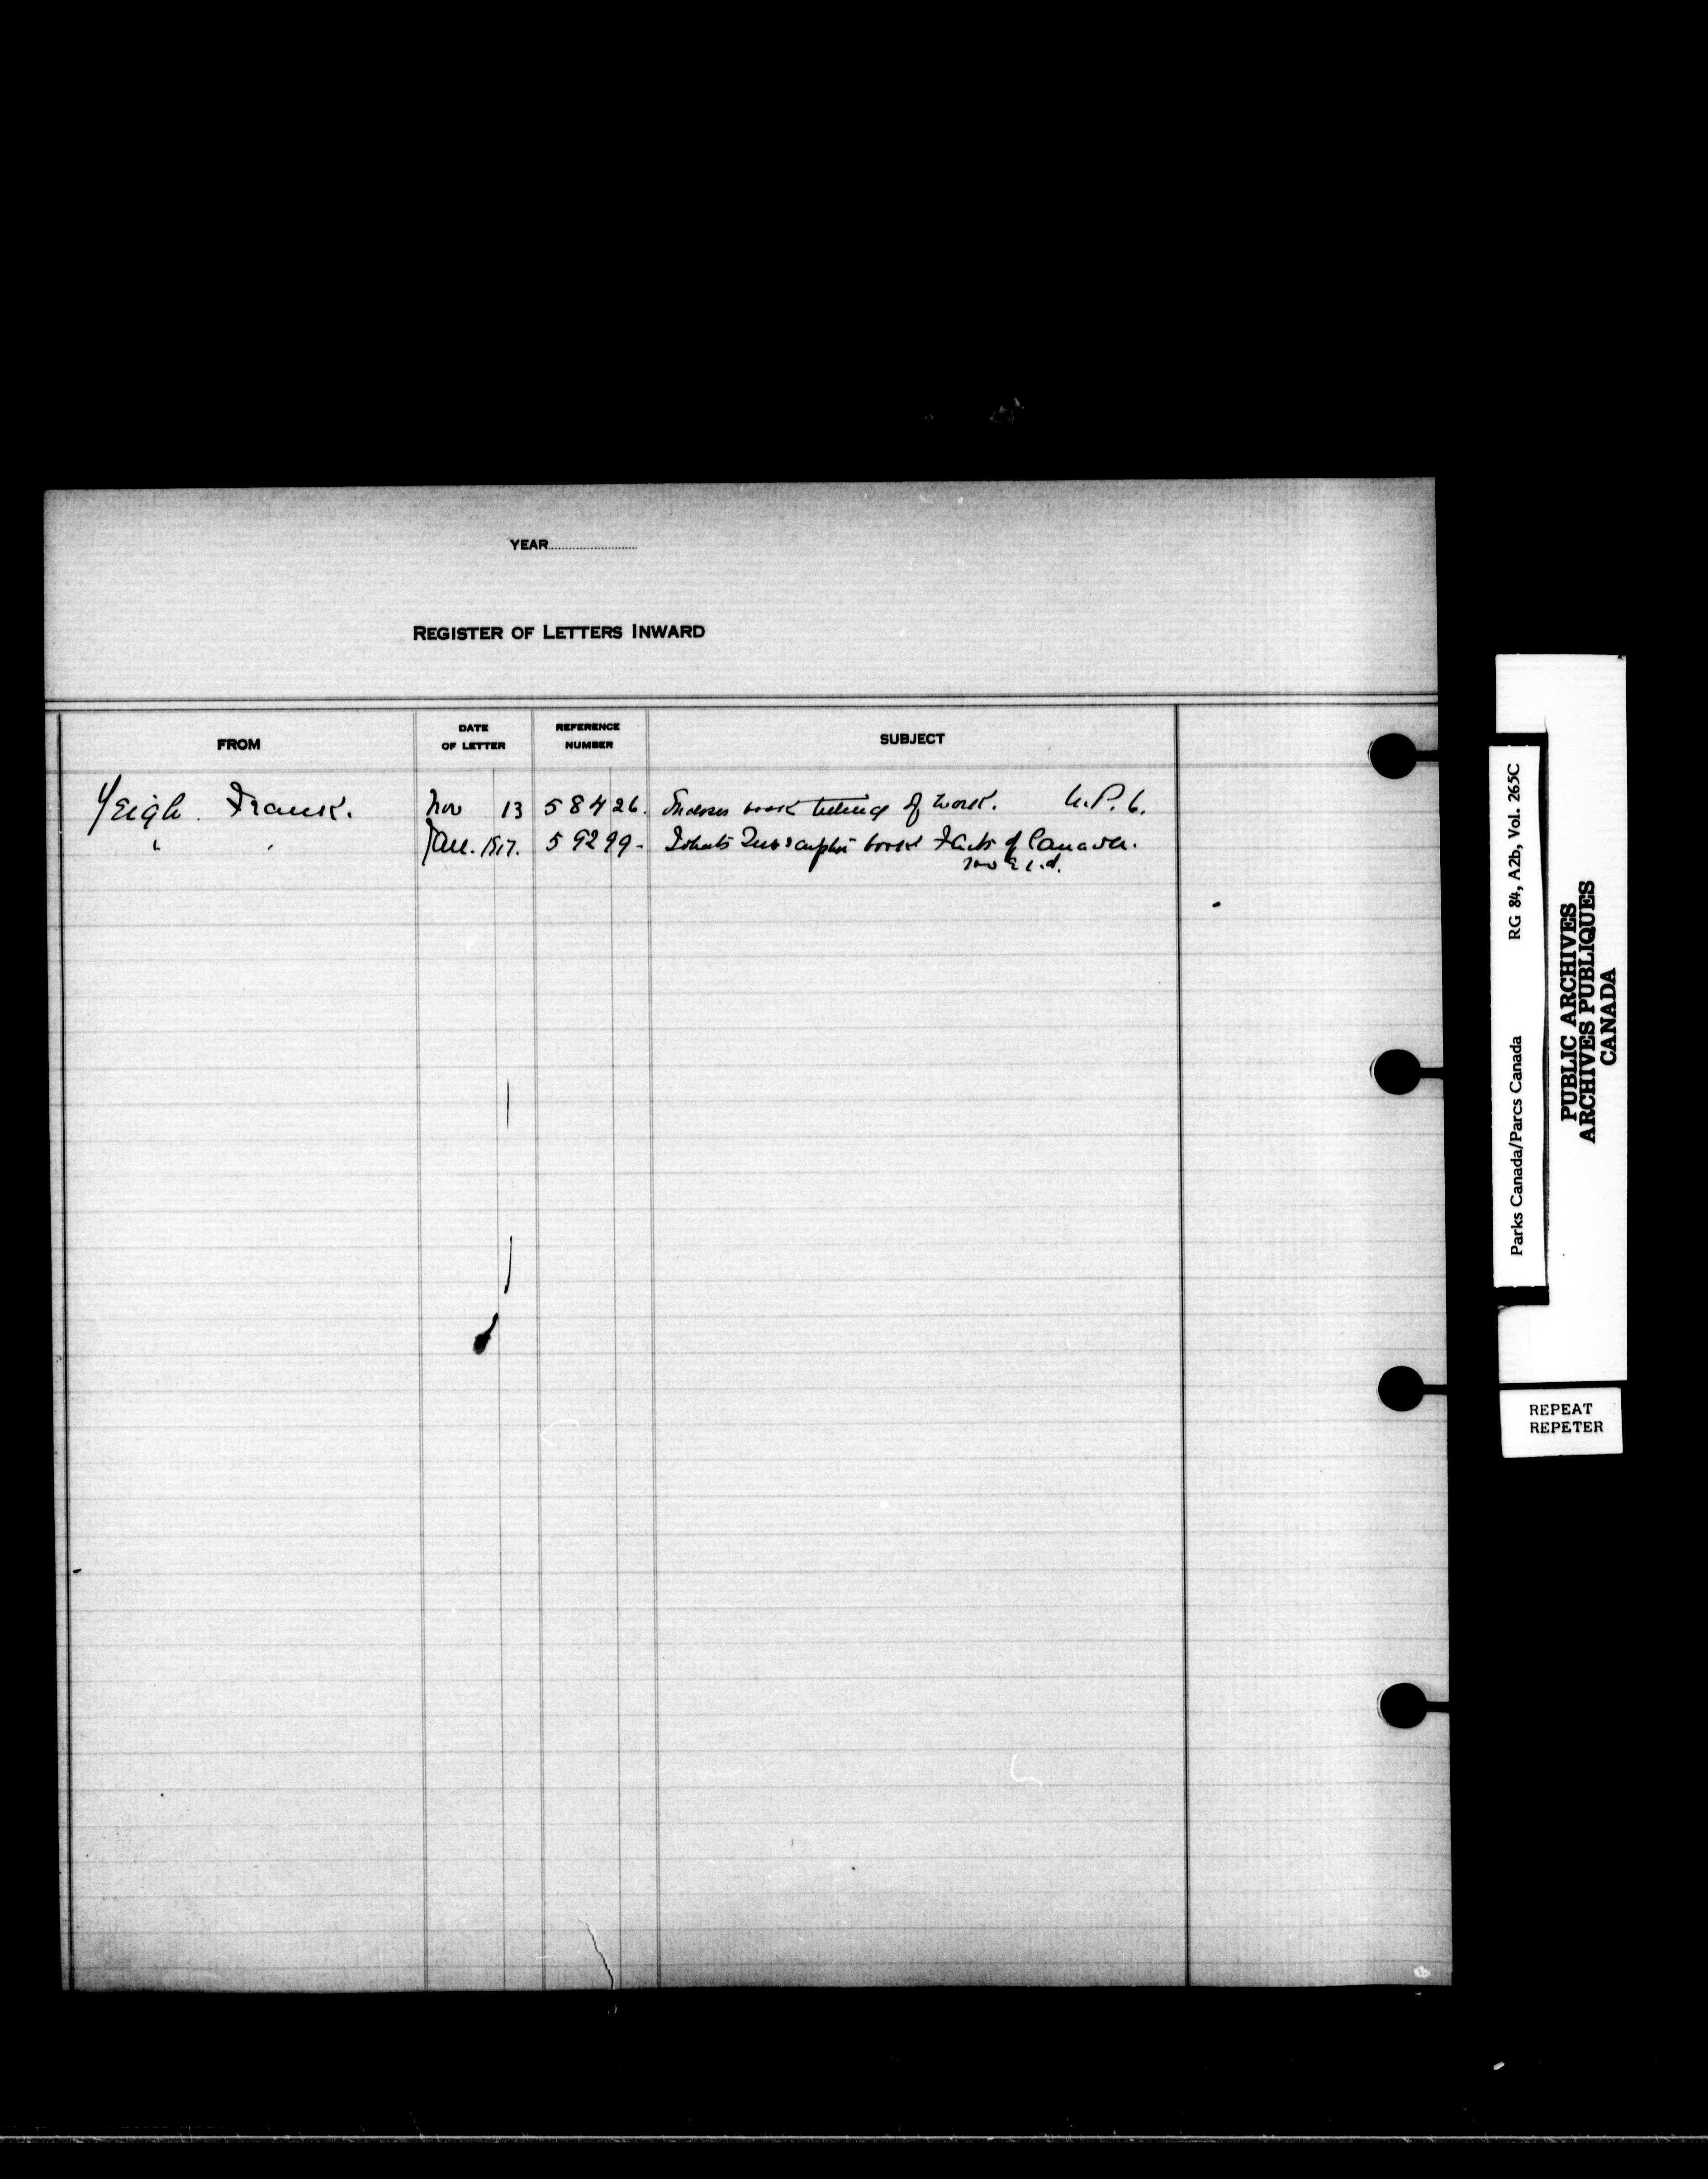 YEAR
REGISTER OF LETTERS INWARD
FROM DATE OF LETTER REFERENCE NUMBER SUBJECT
Yeigh. Frank. Nov 13 58426. book of work. U.P.6.
" " Jan. 1917. 59299- book Facts of Canada.
Parks Canada/Parcs Canada RG 84, A2b, Vol. 265C
PUBLIC ARCHIVES
ARCHIVES PUBLIQUES
CANADA
REPEAT
REPETER